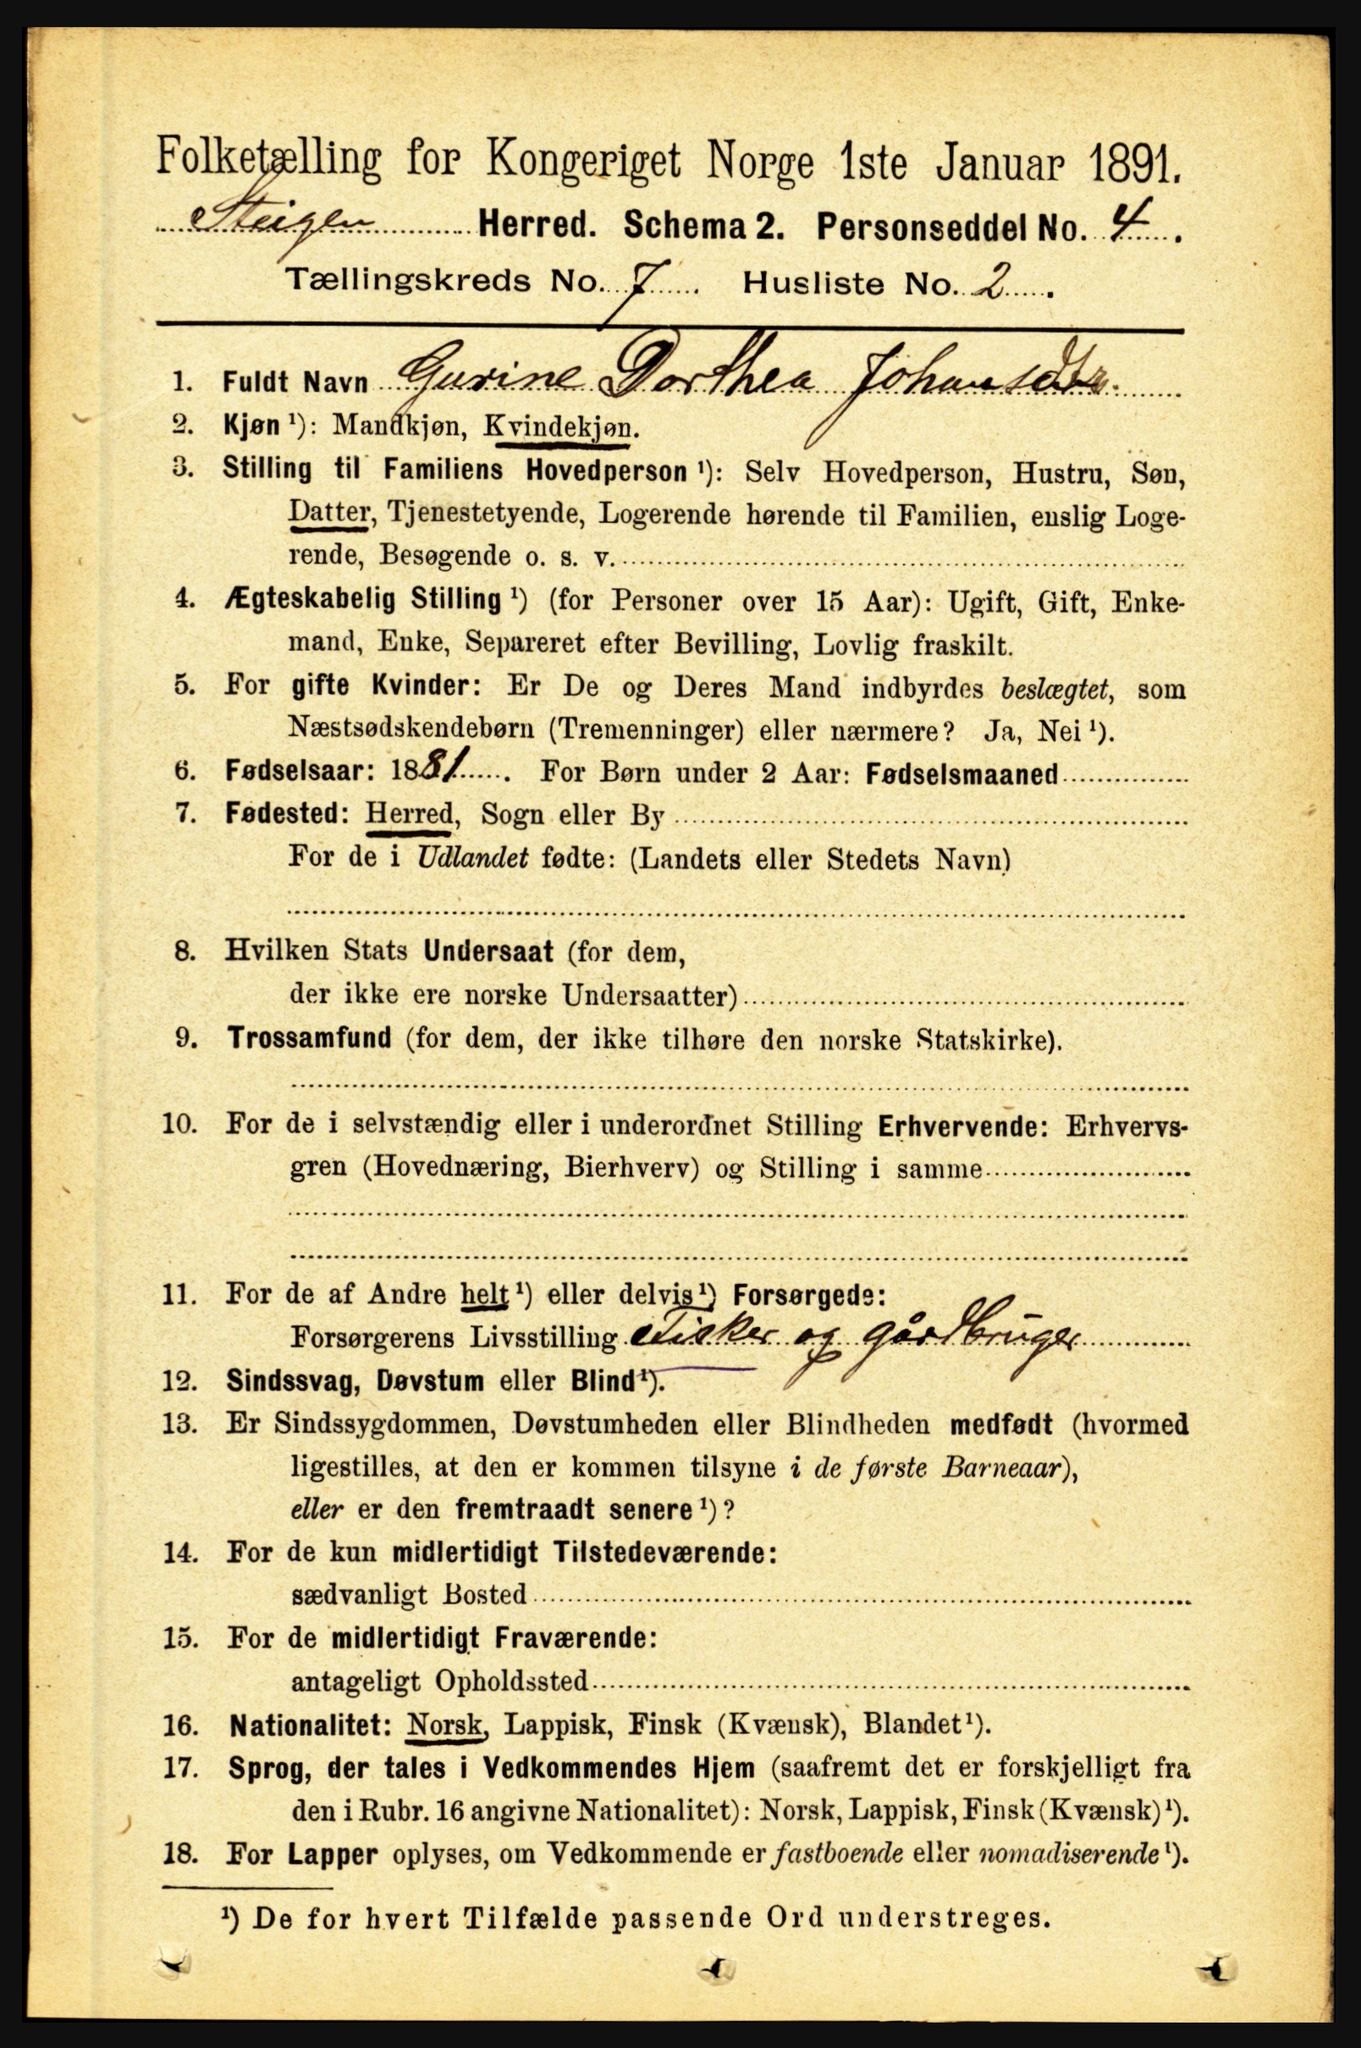 Folketælling for Kongeriget Norge 1ste Januar 1891.
Steigen Herred. Schema 2. Personseddel No. 4.
Tællingskreds No. 7. Husliste No. 2.
1. Fuldt Navn Gurine Dorthea Johansdtr.
2. Kjøn ¹): Mandkjøn, Kvindekjøn.
3. Stilling til Familiens Hovedperson ¹): Selv Hovedperson, Hustru, Søn,
Datter, Tjenestetyende, Logerende hørende til Familien, enslig Loge-
rende, Besøgende o. s. v.
4. Ægteskabelig Stilling ¹) (for Personer over 15 Aar): Ugift, Gift, Enke-
mand, Enke, Separeret efter Bevilling, Lovlig fraskilt.
5. For gifte Kvinder: Er De og Deres Mand indbyrdes beslægtet, som
Næstsødskendebørn (Tremenninger) eller nærmere? Ja, Nei ¹).
6. Fødselsaar: 1881. For Børn under 2 Aar: Fødselsmaaned
7. Fødested: Herred, Sogn eller By
For de i Udlandet fødte: (Landets eller Stedets Navn)
8. Hvilken Stats Undersaat (for dem,
der ikke ere norske Undersaatter)
9. Trossamfund (for dem, der ikke tilhøre den norske Statskirke).
10. For de i selvstændig eller i underordnet Stilling Erhvervende: Erhvervs-
gren (Hovednæring, Bierhverv) og Stilling i samme
11. For de af Andre helt ¹) eller delvis ¹) Forsørgede:
Forsørgerens Livsstilling Fisker og gårdbruger
12. Sindssvag, Døvstum eller Blind ¹).
13. Er Sindssygdommen, Døvstumheden eller Blindheden medfødt (hvormed
ligestilles, at den er kommen tilsyne i de første Barneaar),
eller er den fremtraadt senere ¹)?
14. For de kun midlertidigt Tilstedeværende:
sædvanligt Bosted
15. For de midlertidigt Fraværende:
antageligt Opholdssted
16. Nationalitet: Norsk, Lappisk, Finsk (Kvænsk), Blandet ¹).
17. Sprog, der tales i Vedkommendes Hjem (saafremt det er forskjelligt fra
den i Rubr. 16 angivne Nationalitet): Norsk, Lappisk, Finsk (Kvænsk) ¹).
18. For Lapper oplyses, om Vedkommende er fastboende eller nomadiserende ¹).
¹) De for hvert Tilfælde passende Ord understreges.